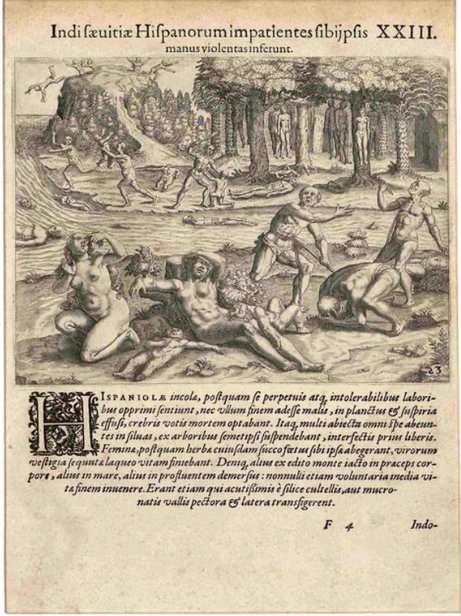 Indi ſæuitiæ Hiſpanorum impatientes ſibijpſis XXIII.
manus violentas inferunt.
23
HISPANIOLÆ incolæ, poſtquam ſe perpetuis atq, intolerabilibus labori-
bus opprimi ſentiunt, nec vllum finem adeſſe malis, in planctus & ſuſpiria
effuſi, crebris votis mortem optabant. Itaq, multi abiecta omni ſpe abeun-
tes in ſiluas, ex arboribus ſemetipſi ſuſpendebant, interfectis prius liberis.
Feminæ, poſtquam herbæ cuiuſdam ſucco fœtus ſibi ipſæ abegerant, virorum
veſtigia ſequutæ laqueo vitam finiebant. Deniq, alius ex edito monte iacto in præceps cor-
pore, alius in mare, alius in profluentem demerſus: nonnulli etiam voluntaria inedia vi-
tæ finem inuenere. Erant etiam qui acutiſſimis è ſilice cultellis, aut mucro-
natis vallis pectora & latera transfigerent.
F 4 Indo-